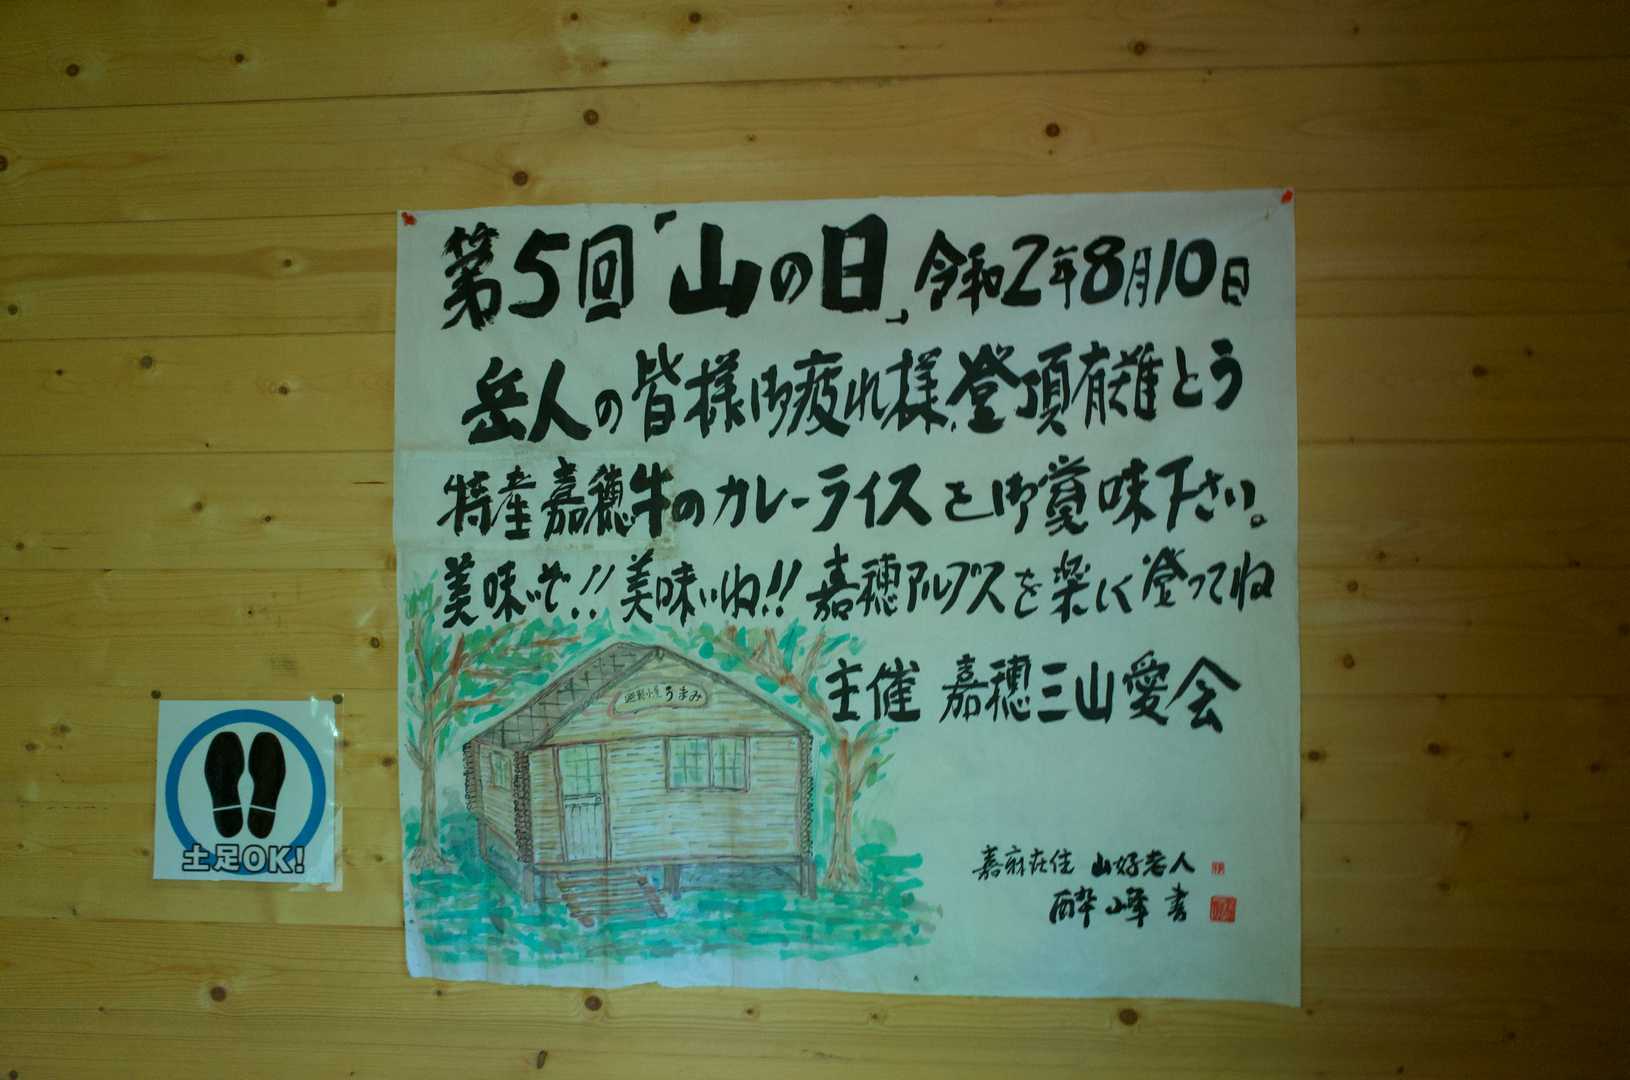 第5回「山の日」令和2年8月10日
岳人の皆様御疲れ様、登頂有難とう
特産嘉穂牛のカレーライスを御賞味下さい。
美味いぞ!!美味いね!!嘉穂アルプスを楽しく登ってね
避難小屋うまみ
主催 嘉穂三山愛会
嘉麻在住 山好老人
酔峰書
土足OK!